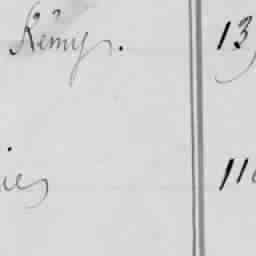 Rémy. 13
ies 110